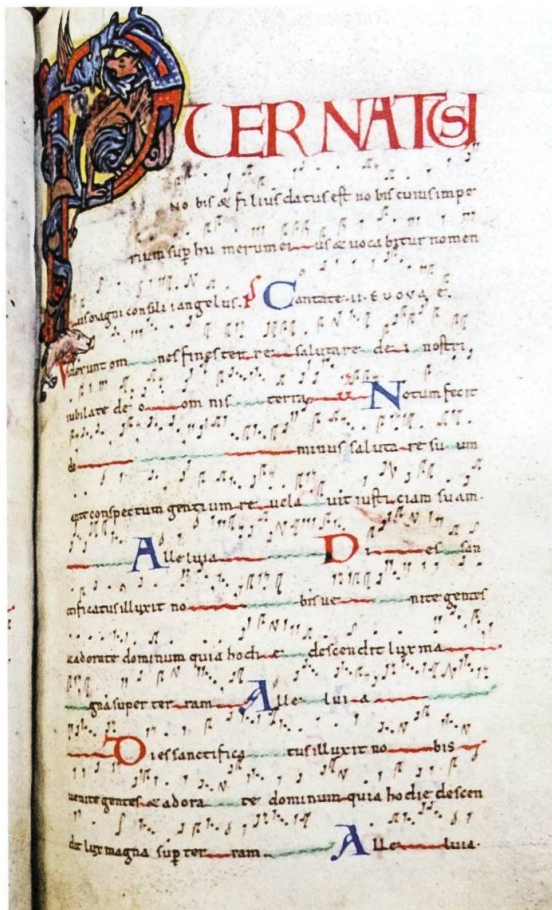 PUER NATUS
NO bis & filius datus est no bis cuius impe
rium sup hu merum ei us & uoca bitur nomen
eius magni consilii angelus. P Cantate .ii. E U O V A E.
Viderunt om nes fines ter re salutare de i nostri
iubilate deo om nis terra V Notum fecit
do minus saluta re su um
ante conspectum gentium re uela uit iusticiam suam.
Alleluia Di es san
ctificatus illuxit no bis ue nite gentes
& adorate dominum quia hodi e descendit lux ma
gna super ter ram Alle lui a
Dies sanctifica tus illuxit no bis
uenite gentes & adora te dominum quia hodie descen
dit lux magna sup ter ram. Alle luia.